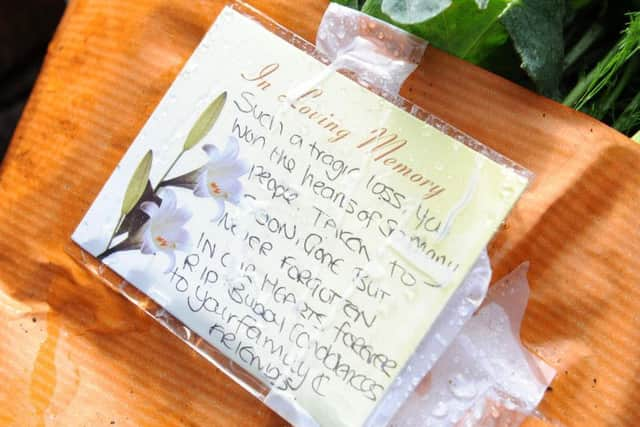 In Loving Memory
Such a tragic loss, you
won the hearts of So many
people. TAKEN TO
SOON, GONE BUT
NEVER FORGOTTEN
IN OUR HEARTS FOREVER
RIP BUDDY CONDOLENCES
TO your family &
FRIENDS